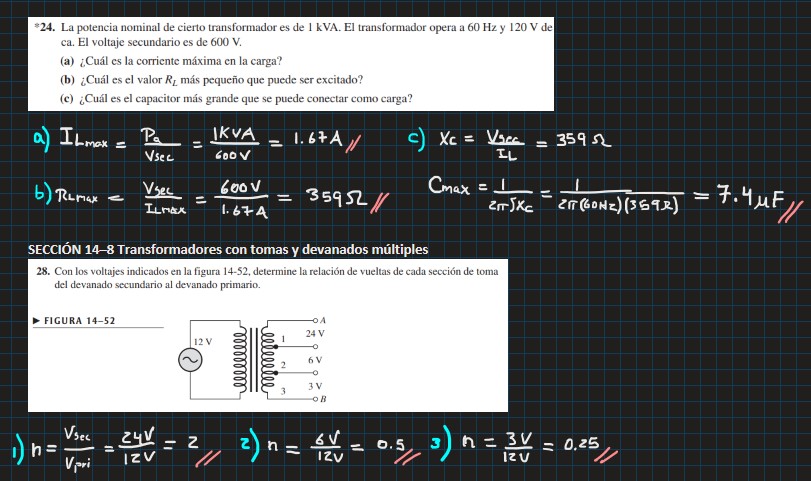 *24. La potencia nominal de cierto transformador es de 1 kVA. El transformador opera a 60 Hz y 120 V de
ca. El voltaje secundario es de 600 V.
(a) ¿Cuál es la corriente máxima en la carga?
(b) ¿Cuál es el valor R_L más pequeño que puede ser excitado?
(c) ¿Cuál es el capacitor más grande que se puede conectar como carga?
a) ILmax = Pa/Vsec = 1KVA/600V = 1.67A
b) RLmax = Vsec/ILmax = 600V/1.67A = 359Ω
c) Xc = Vsec/IL = 359 Ω
Cmax = 1/2πfXc = 1/2π(60Hz)(359Ω) = 7.4μF
SECCIÓN 14–8 Transformadores con tomas y devanados múltiples
28. Con los voltajes indicados en la figura 14-52, determine la relación de vueltas de cada sección de toma
del devanado secundario al devanado primario.
▶ FIGURA 14–52
12 V
A
1
24 V
2
6 V
3
3 V
B
1) n = Vsec/Vpri = 24V/12V = 2
2) n = 6V/12V = 0.5
3) n = 3V/12V = 0,25